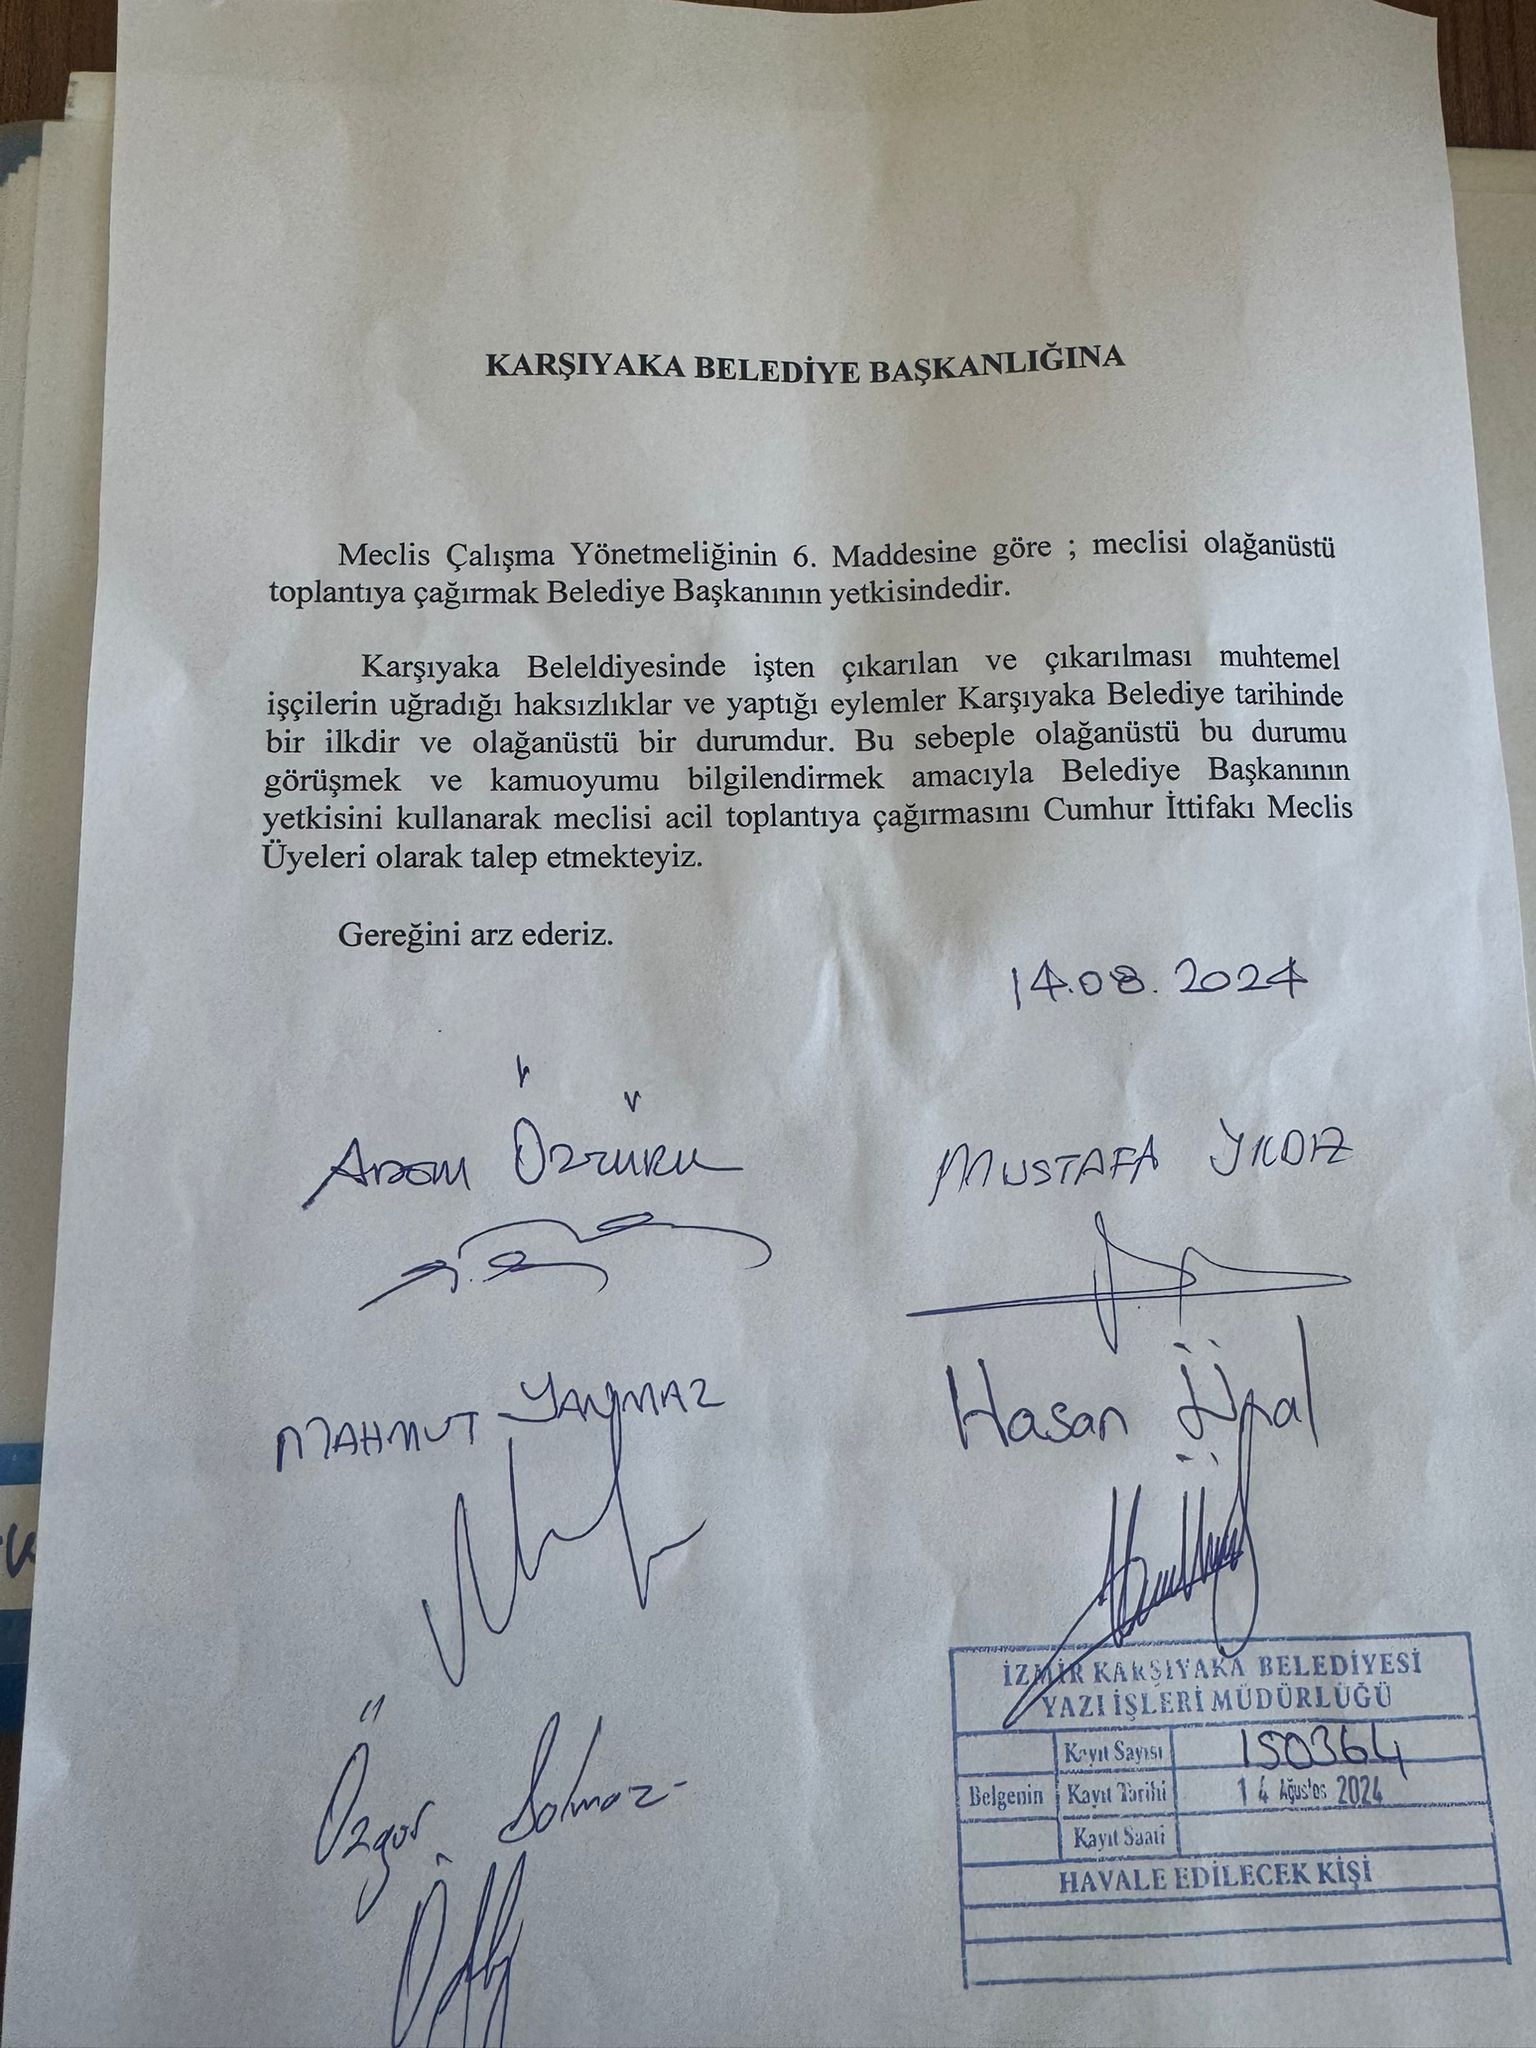 KARŞIYAKA BELEDİYE BAŞKANLIĞINA
Meclis Çalışma Yönetmeliğinin 6. Maddesine göre ; meclisi olağanüstü
toplantıya çağırmak Belediye Başkanının yetkisindedir.
Karşıyaka Beleldiyesinde işten çıkarılan ve çıkarılması muhtemel
işçilerin uğradığı haksızlıklar ve yaptığı eylemler Karşıyaka Belediye tarihinde
bir ilkdir ve olağanüstü bir durumdur. Bu sebeple olağanüstü bu durumu
görüşmek ve kamuoyumu bilgilendirmek amacıyla Belediye Başkanının
yetkisini kullanarak meclisi acil toplantıya çağırmasını Cumhur İttifakı Meclis
Üyeleri olarak talep etmekteyiz.
Gereğini arz ederiz.
14.08.2024
Adem Öztürk
MUSTAFA YILDIZ
MAHMUT YANMAZ
Hasan Ünal
Özgür Solmaz
İZMİR KARŞIYAKA BELEDİYESİ
YAZI İŞLERİ MÜDÜRLÜĞÜ
Kayıt Sayısı 150364
Belgenin Kayıt Tarihi 14 Ağustos 2024
Kayıt Saati
HAVALE EDİLECEK KİŞİ